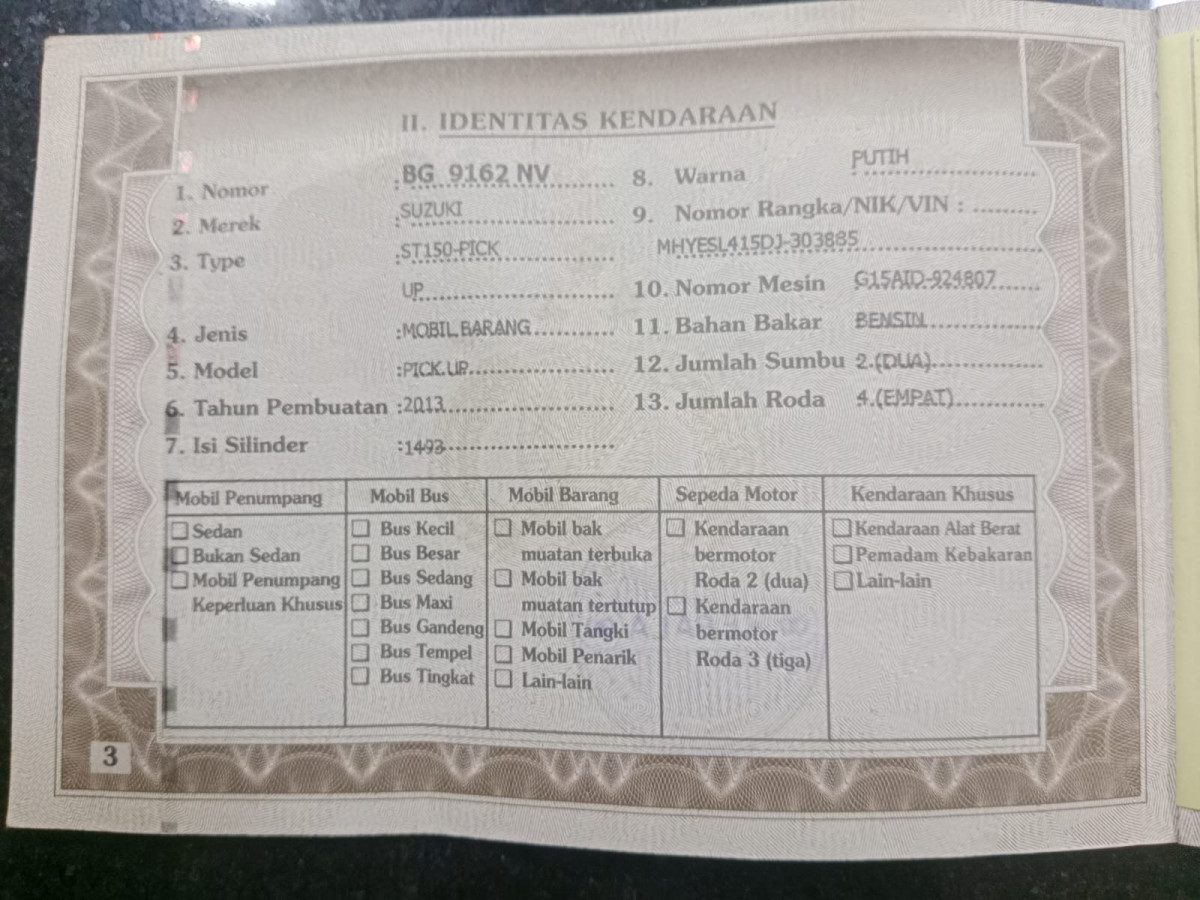 II. IDENTITAS KENDARAAN
1. Nomor : BG 9162 NV
2. Merek : SUZUKI
3. Type : ST150-PICK
UP
4. Jenis : MOBIL BARANG
5. Model : PICK.UP
6. Tahun Pembuatan : 2013
7. Isi Silinder : 1493
8. Warna : PUTIH
9. Nomor Rangka/NIK/VIN :
MHYESL415DJ-303885
10. Nomor Mesin G15AID-924807
11. Bahan Bakar BENSIN
12. Jumlah Sumbu 2.(DUA)
13. Jumlah Roda 4.(EMPAT)
Mobil Penumpang
Sedan
Bukan Sedan
Mobil Penumpang
Keperluan Khusus
Mobil Bus
Bus Kecil
Bus Besar
Bus Sedang
Bus Maxi
Bus Gandeng
Bus Tempel
Bus Tingkat
Mobil Barang
Mobil bak
muatan terbuka
Mobil bak
muatan tertutup
Mobil Tangki
Mobil Penarik
Lain-lain
Sepeda Motor
Kendaraan
bermotor
Roda 2 (dua)
Kendaraan
bermotor
Roda 3 (tiga)
Kendaraan Khusus
Kendaraan Alat Berat
Pemadam Kebakaran
Lain-lain
3